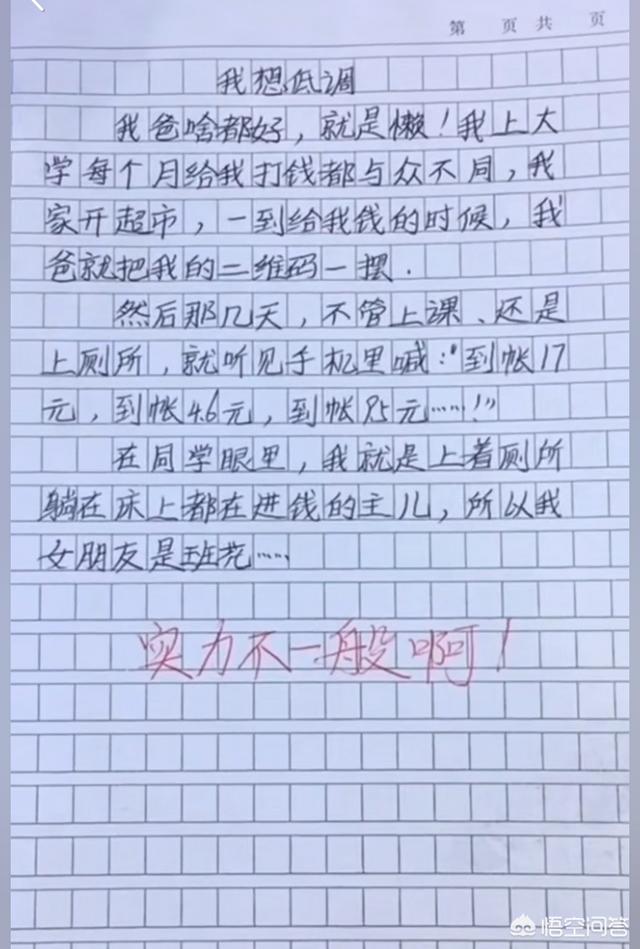 第 页 共 页
我想低调
我爸啥都好，就是懒！我上大
学每个月给我打钱都与众不同，我
家开超市，一到给我钱的时候，我
爸就把我的二维码一摆.
然后那几天，不管上课、还是
上厕所，就听见手机里喊："到帐17
元，到帐46元，到帐85元……！"
在同学眼里，我就是上着厕所
躺在床上都在进钱的主儿，所以我
女朋友是班花……
实力不一般啊！
悟空问答